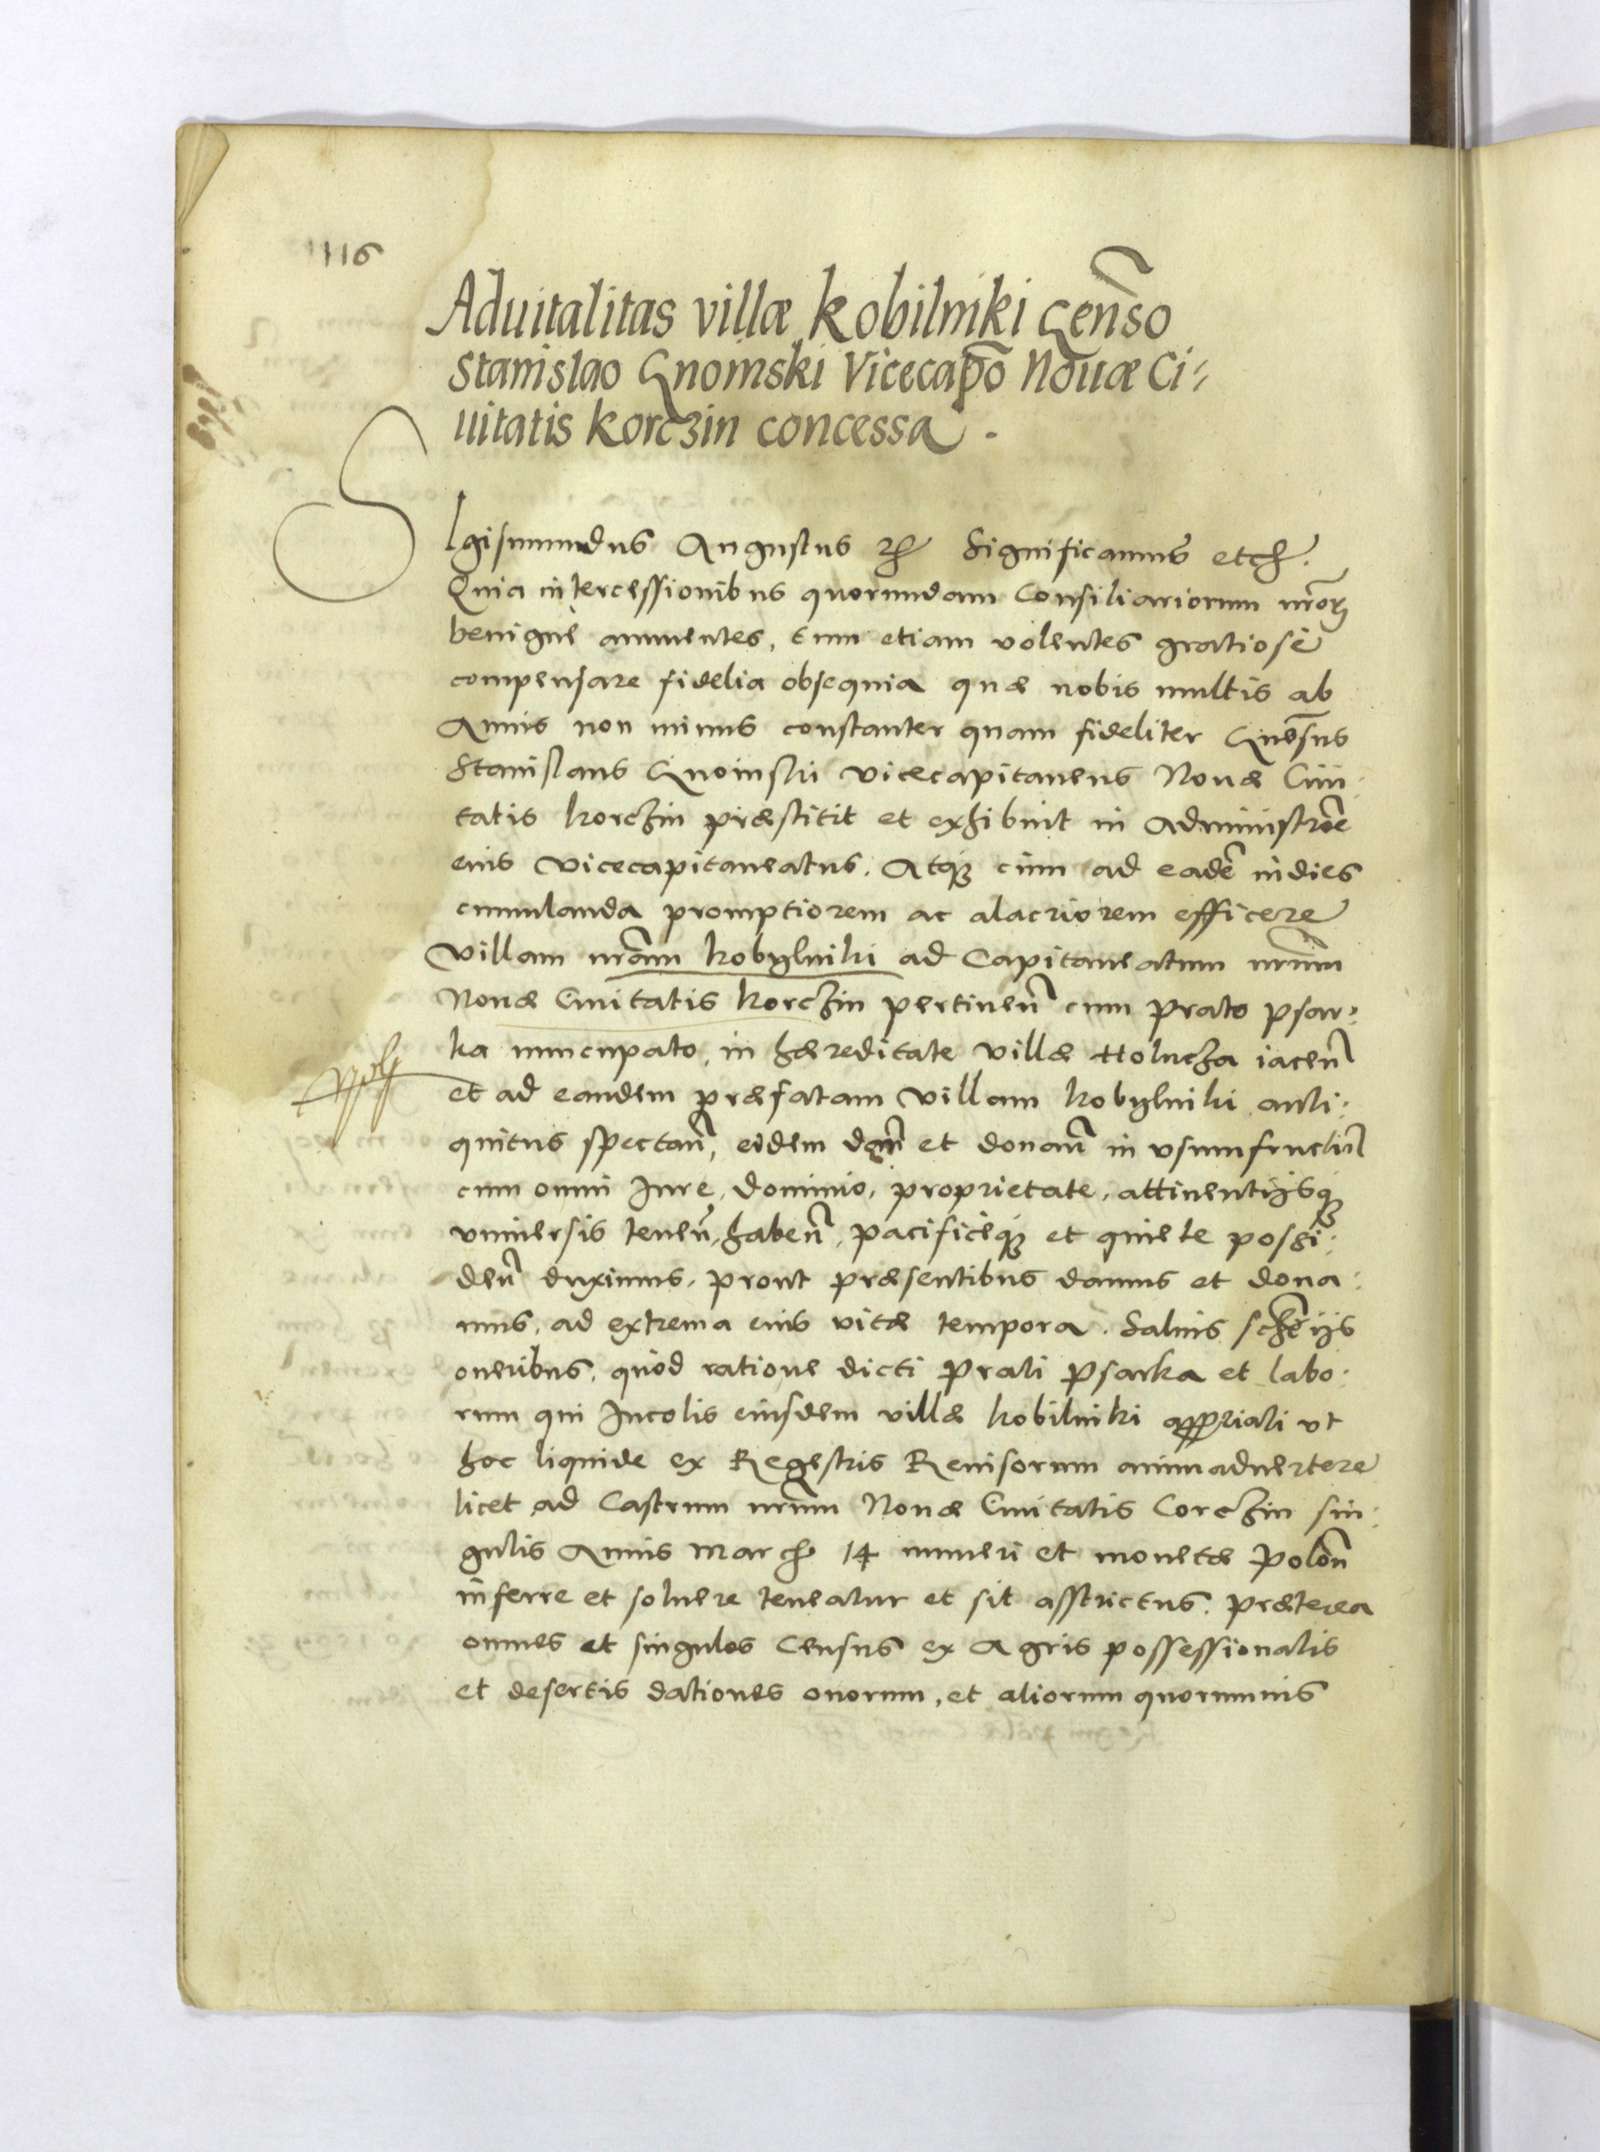 116
Aduitalitas villæ Kobilniki Gen̄so
Stanislao Gnoinski Vicecap̄o Nouæ Ci-
uitatis Korczin concessa.
SIgismundus Augustus etc Significamus etc.
Quia intercessionibus quorumdam Consiliariorum nr̄orum
benigne annuentes, Cum etiam volentes gratiose
compensare fidelia obsequia quæ nobis multis ab
Annis non minus constanter quam fideliter Gn̄esus
Stanislaus Gnoinski vicecapitaneus Nouæ Ciui:
tatis Korczin præstitit et exhibuit in Administrōe
eius Vicecapitaneatus. Atq3 eum ad eadē indies
cumulanda promptiorem ac alacriorem efficere
Villam nr̄am Kobylniki ad Capitaneatum nr̄um
Nouæ Ciuitatis Korczin pertinen̄ cum Prato Psar:
ka nuncupato, in hæreditate villæ Holucza iacen̄
et ad eandem præfatam Villam Kobylniki anti:
quitus spectan̄, eidem dan̄ et donan̄ in vsumfructū
cum omni Iure, dominio, proprietate, attinentijsq3
vniuersis tenen̄, haben̄, pacificeq3 et quiete possi:
den̄ duximus, prout præsentibus damus et dona:
mus, ad extrema eius vitæ tempora. Saluis
oneribus, quod ratione dicti Prati Psarka et labo:
rum qui Incolis eiusdem villæ Kobilniki appriati vt
hoc liquide ex Regestris Reuisorum animaduertere
licet ad Castrum nr̄um Nouæ Ciuitatis Corczin sin:
gulis Annis March 14 numeri et monetæ Polon̄
inferre et soluere teneatur et sit asstrictus. Præterea
omnes et singulos Census ex Agris possessionatis
et desertis dationes ouorum, et aliorum quorumuis